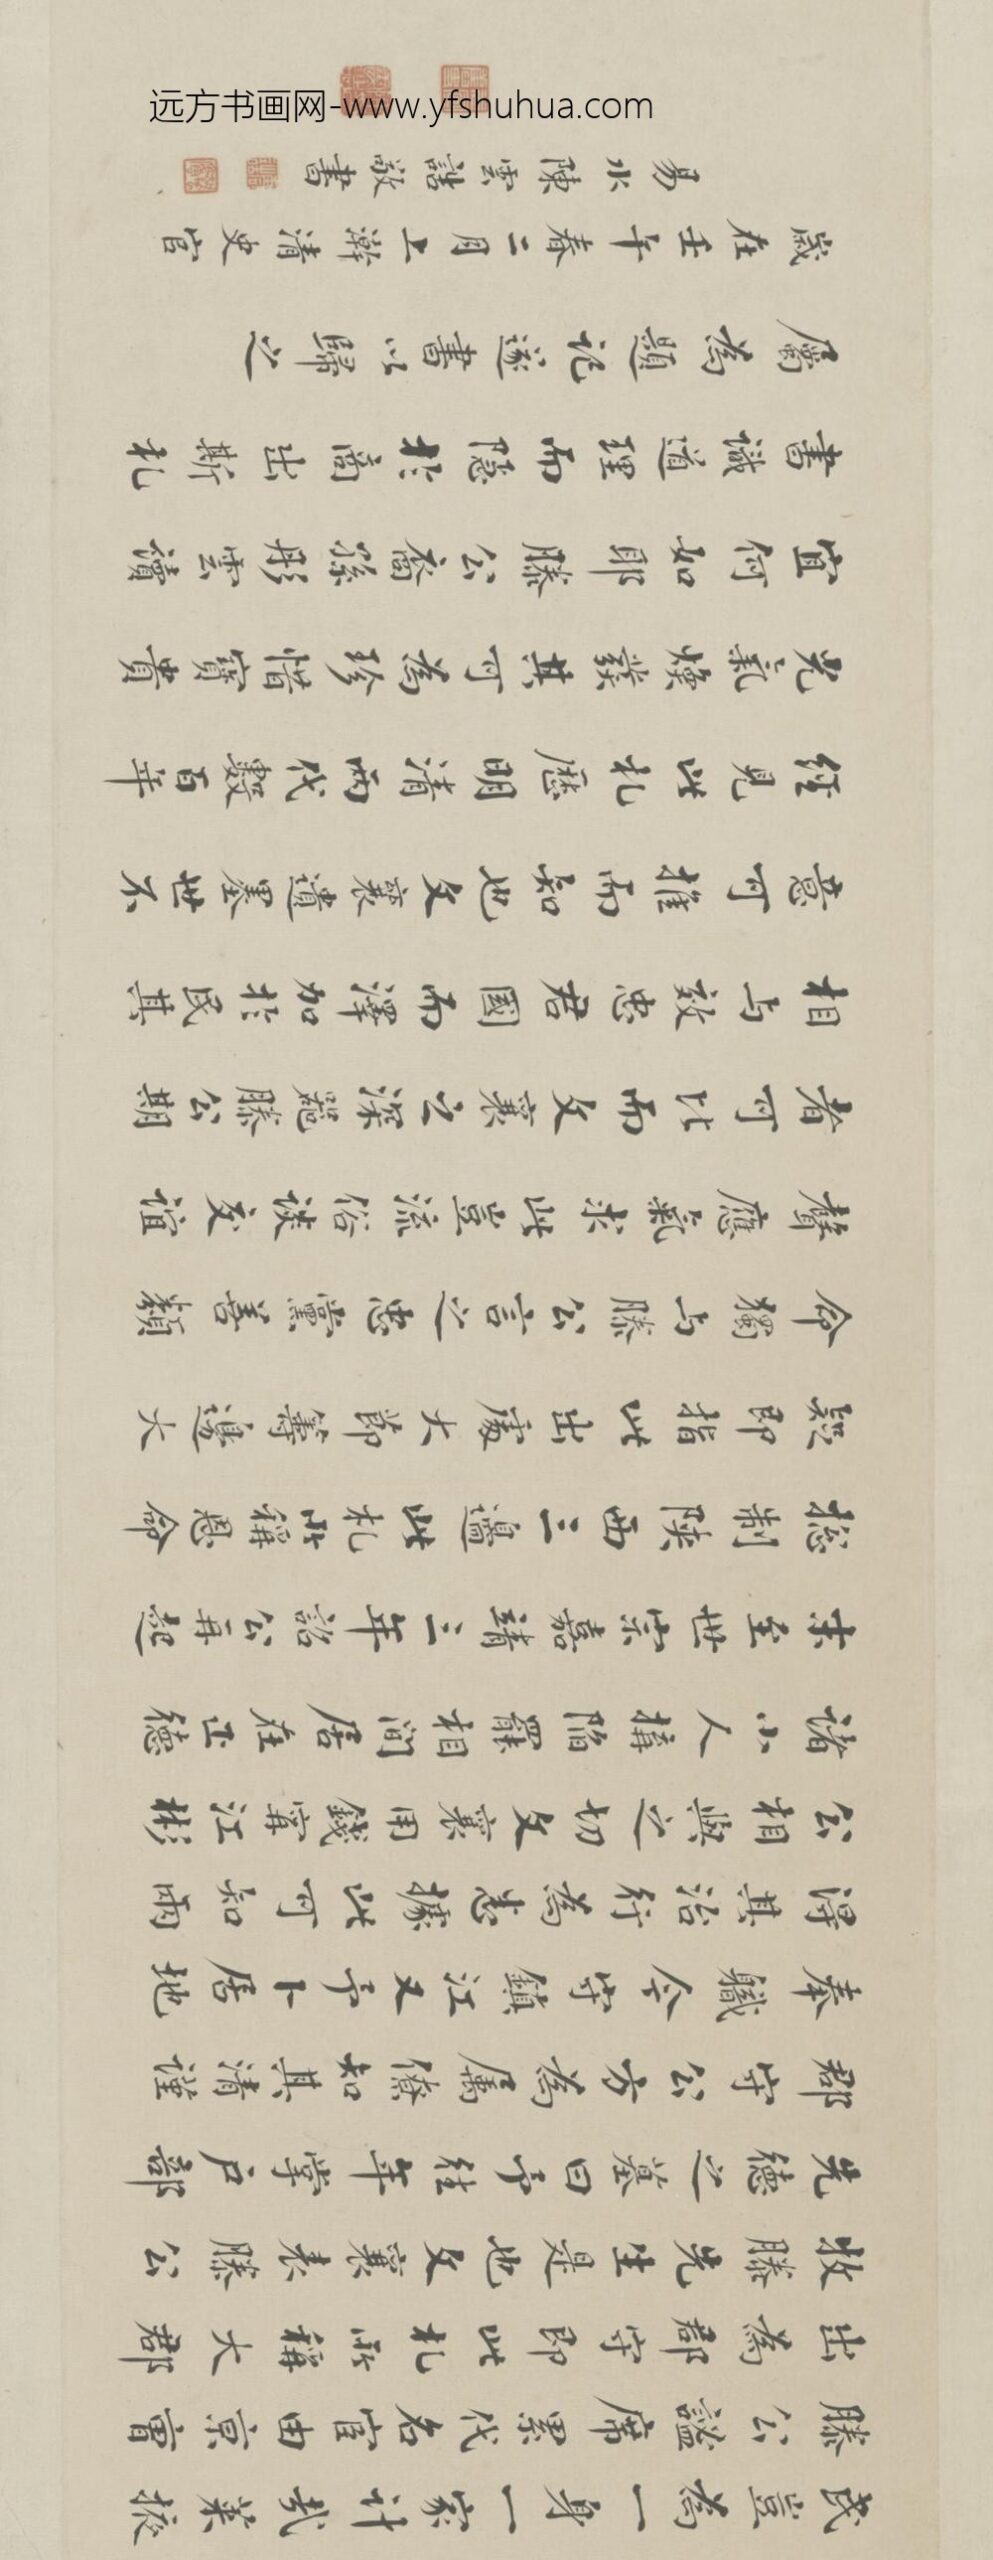 民豈為一身一家計哉萊振
滕公謐席累代名宦由京曹
出為郡守即此札所稱大郡
牧滕先生是也文襄表滕公
先德之墓曰予往年掌戶部
郡守公方為屬僚知其清謹
奉職今守鎮江又予卜居地
得其治行為悉據此可知兩
公相與之切文襄用錢寧江彬
諸小人搆陷罷相閒居在正德
末至世宗嘉靖三年詔公再起
總制陝西三邊此札所稱恩命
疑即指此出處大節籌邊大
命獨与滕公言之忠黨善類
聲應氣求此豈流俗談交誼
者可比而文襄之深契滕公期
相与效忠君國而澤加於民其
意可推而知也文襄遺墨世不
經見此札歷明清兩代數百年
光氣煥發其可為珍惜寶貴
宜何如耶滕公裔孫彤雲讀
書識道理而隱於商出斯札
屬為題記遂書以歸之
歲在壬午春二月上澣清史官
易水陳雲誥敬書
远方书画网-www.yfshuhua.com